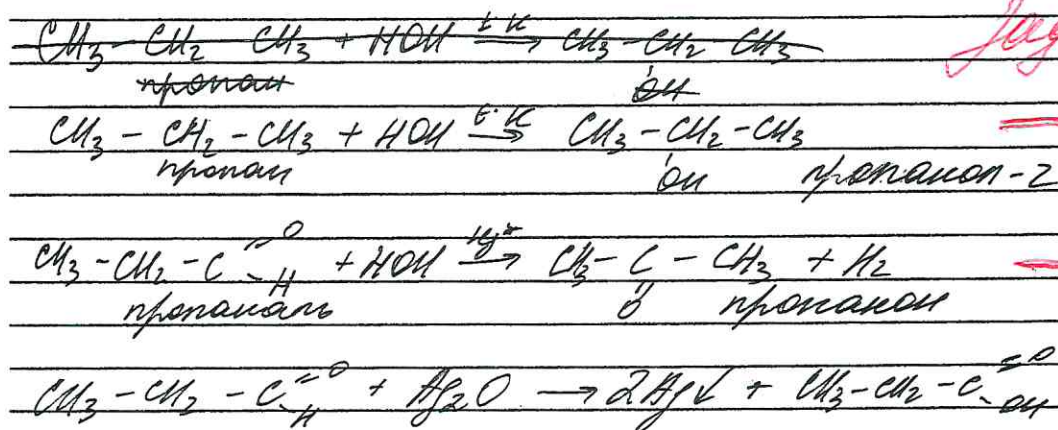 CH₃ – CH₂ – CH₃ + HOH →(t, K) CH₃ – CH₂ – CH₃
пропан OH
CH₃ – CH₂ – CH₃ + HOH →(t, K) CH₃ – CH₂ – CH₃
пропан OH пропанол-2
CH₃ – CH₂ – C(=O) – H + HOH →(Hg⁺) CH₃ – C – CH₃ + H₂
пропаналь O пропанон
CH₃ – CH₂ – C(=O) – H + Ag₂O → 2Ag↓ + CH₃ – CH₂ – C(=O) – OH